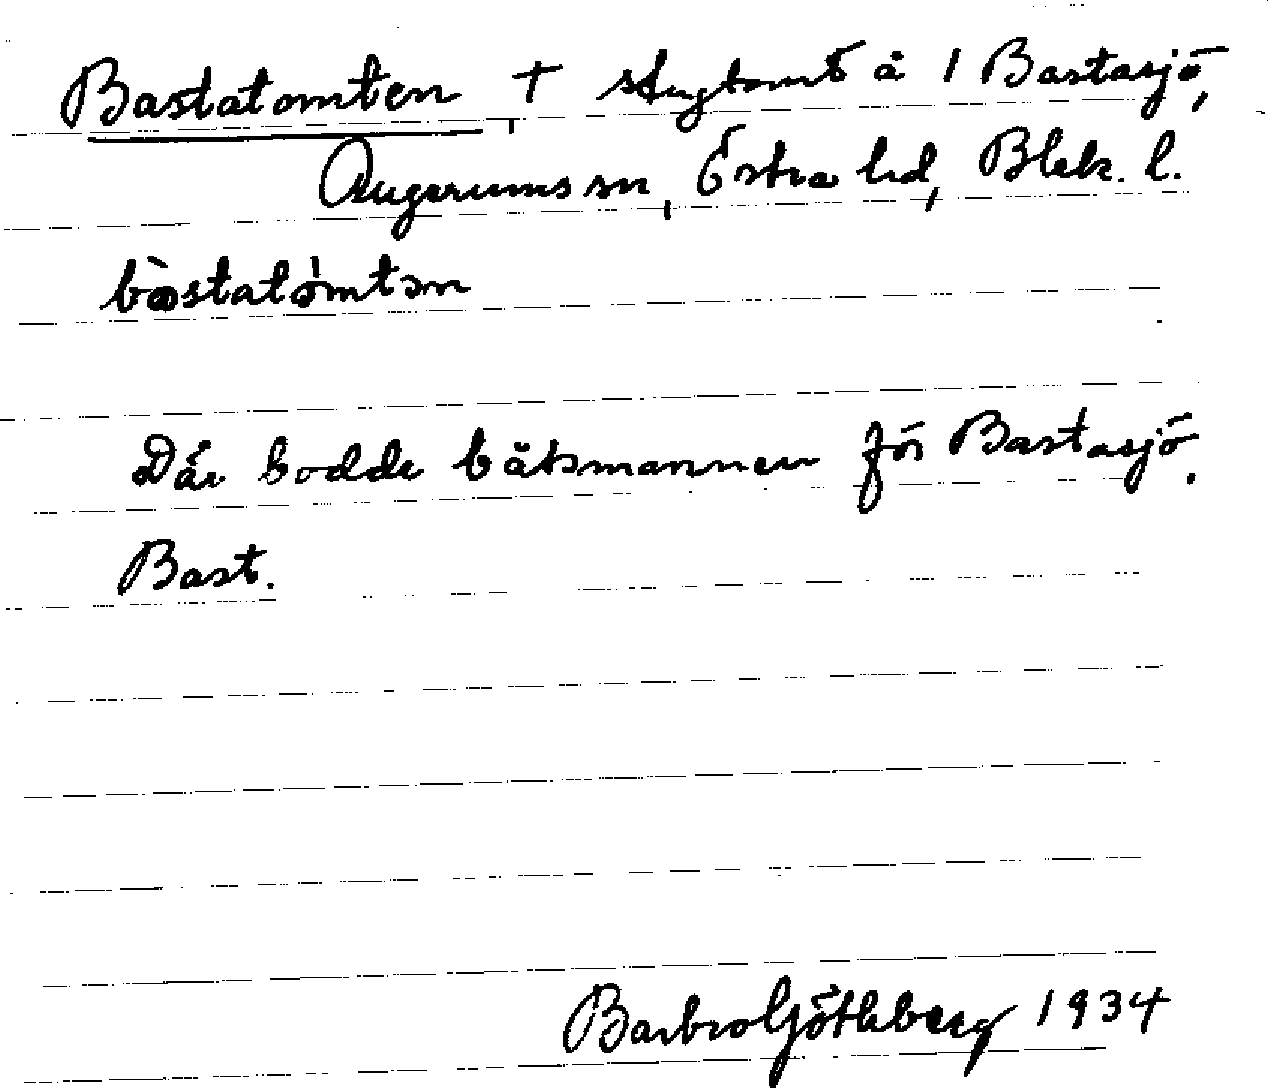 Bastatomten, † stugtomt å 1 Bastasjö,
Augerums sn, Östra hd, Blek. l.
bàstatómtən
Där bodde båtsmannen för Bastasjö.
Bast.
Barbro Götheberg 1934